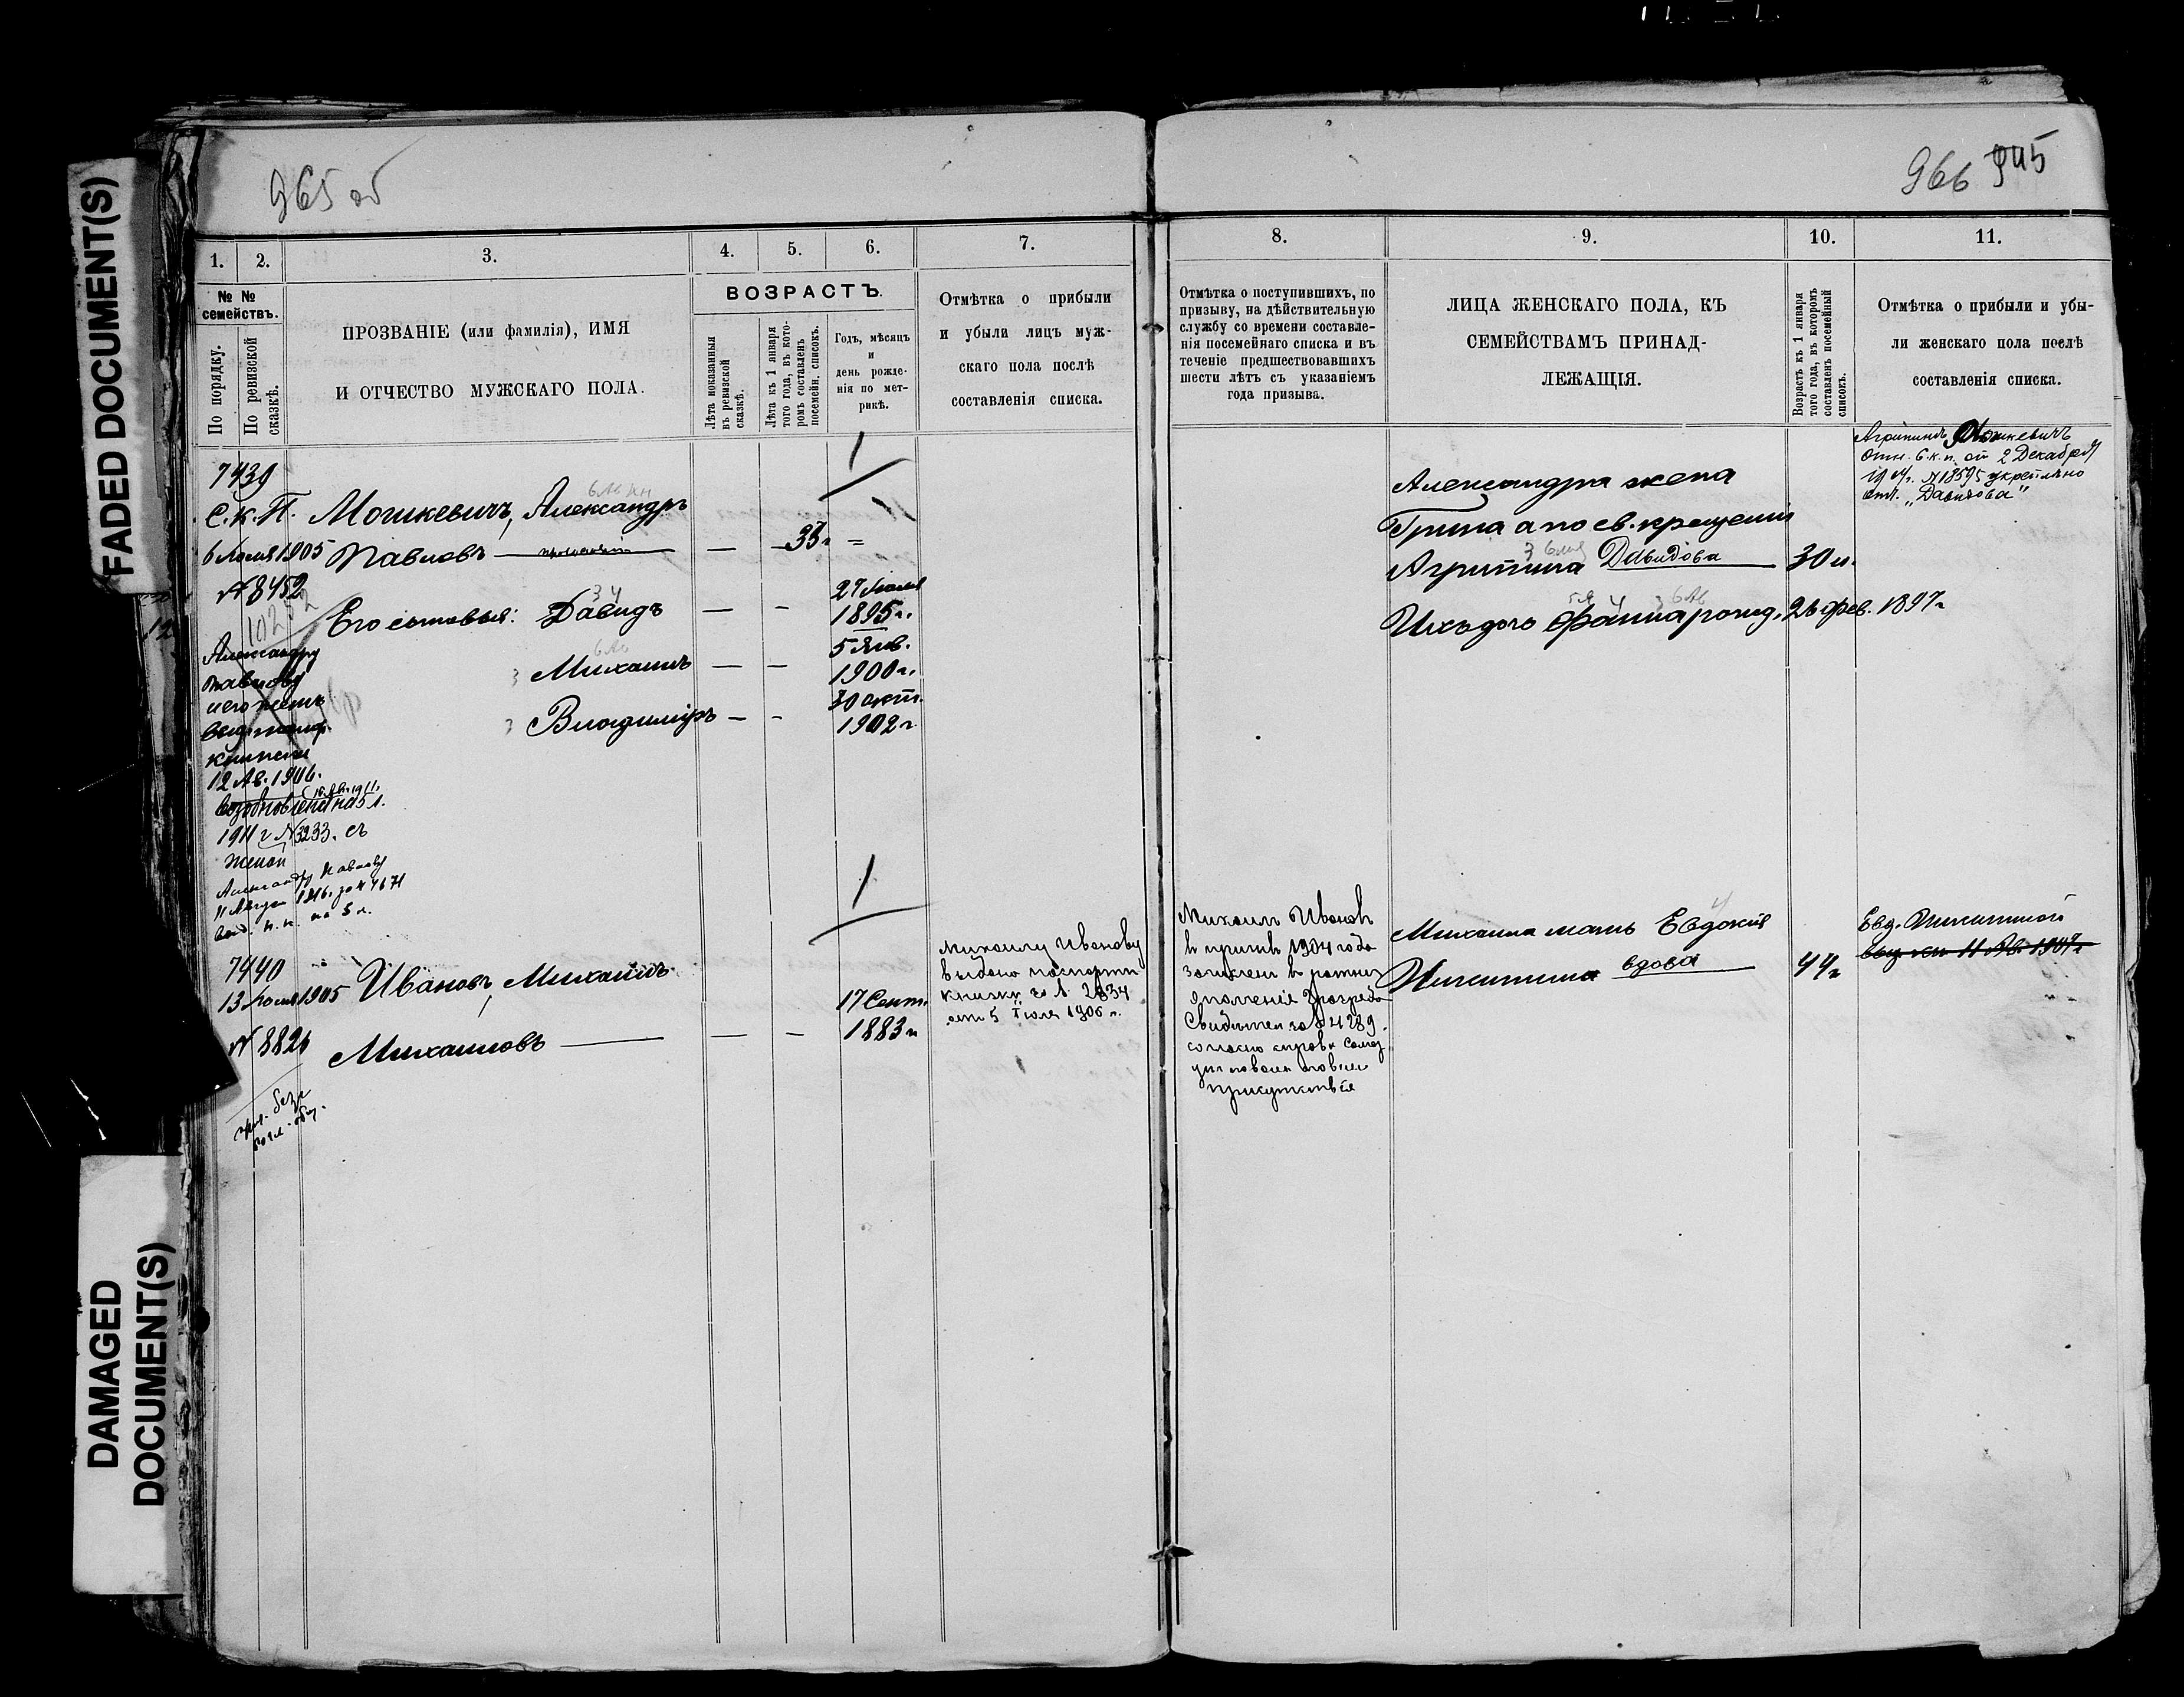 FADED DOCUMENT(S)
DAMAGED
DOCUMENT(S)
965 об
1.
2.
3.
4.
5.
6.
7.
№ №
семействъ.
По порядку.
По ревизской
сказкѣ.
ПРОЗВАНІЕ (или фамилія), ИМЯ
И ОТЧЕСТВО МУЖСКАГО ПОЛА.
ВОЗРАСТЪ.
Лѣта показанныя
въ ревизской
сказкѣ.
Лѣта къ 1 января
того года, въ кото-
ромъ составленъ
посемейн. списокъ.
Годъ, мѣсяцъ
и
день рожде-
нія по мет-
рикѣ.
Отмѣтка о прибыли
и убыли лицъ муж-
скаго пола послѣ
составленія списка.
7439
С.К.П. Мошкевичъ, Александръ
6 Іюля 1905 Павловъ — — 33 г =
№ 8452
10282
Его сыновья: Давидъ — —
27 Іюля
1895 г.
Михаилъ — —
5 Янв.
1900 г.
Владиміръ — —
30 окт.
1902 г
Александру
Павлову
и его женѣ
книжки
12 Ав. 1906.
возобновлена на 5 л.
1911 г № 3233. съ
женой
Александру Павлову
11 Августа 1916. за № 4671
выд. п. к. на 5 л.
7440
13 Іюля 1905 Ивановъ, Михаилъ
№ 8826 Михаиловъ — — —
17 Сент.
1883 г
Михаилу Иванову
выдана паспортн
книжка за № 2834
отъ 5 Іюля 1906 г.
966 945
8.
9.
10.
11.
Отмѣтка о поступившихъ, по
призыву, на дѣйствительную
службу со времени составле-
нія посемейнаго списка и въ
теченіе предшествовавшихъ
шести лѣтъ съ указаніемъ
года призыва.
ЛИЦА ЖЕНСКАГО ПОЛА, КЪ
СЕМЕЙСТВАМЪ ПРИНАД-
ЛЕЖАЩІЯ.
Возрастъ къ 1 января
того года, въ которомъ
составленъ посемейный
списокъ.
Отмѣтка о прибыли и убы-
ли женскаго пола послѣ
составленія списка.
Александра жена
а по св. крещенію
Агрипина Давидова 30 л.
Ихъ дочь Фаина рожд. 26 фев. 1897 г
Мошкевичъ
отн. С.к.п. от 2 Декабря
№ 13595 укреплено
отч. „Давидова"
Михаилъ Ивановъ
в призывъ 1904 года
зачисленъ в ратники
ополченія 2 разряда
Свидѣтел за № 4289.
присутствія
Михаила мать Евдокія
Никитина вдова 44 г
Евд. Никитиной
выд. кн 11 Ав. 1907 г